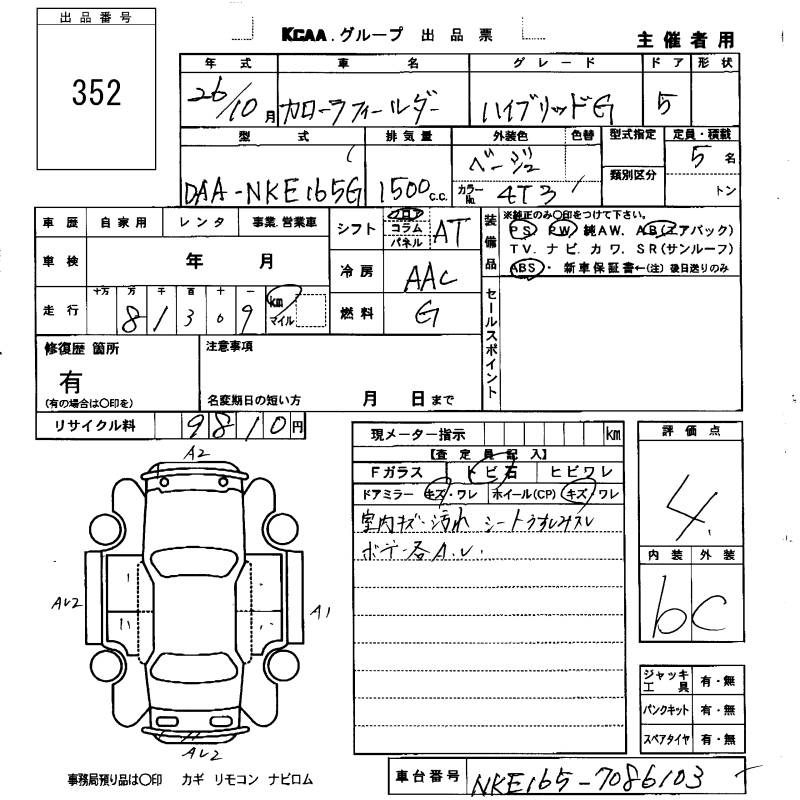 出品番号
352
KCAA.グループ 出品票
主催者用
年式 車名 グレード ドア 形状
26/10月 カローラフィールダー ハイブリッドG 5
型式 排気量 外装色 色替 型式指定 定員・積載
DAA-NKE165G 1500 c.c. ベージュ 5名
カラーNo. 4T3 類別区分 トン
車歴 自家用 レンタ 事業.営業車
シフト フロア コラム パネル AT
装備品
※純正のみ〇印をつけて下さい。
PS PW 純AW. AB(エアバック)
TV. ナビ. カワ. SR(サンルーフ)
ABS・ 新車保証書←(注) 後日送りのみ
車検 年 月
冷房 AAC
走行 十万 万 千 百 十 一
81309 km マイル
燃料 G
セールスポイント
修復歴 箇所
有
(有の場合は〇印を)
注意事項
名変期日の短い方 月 日まで
リサイクル料 9810円
現メーター指示 km
【査定員記入】
Fガラス トビ石 ヒビワレ
ドアミラー キズ・ワレ ホイール(CP) キズ/ワレ
室内キズ・汚れ シートうすしみスレ
ボデー各A.U.
評価点
4.
内装 外装
b C
ジャッキ工具 有・無
パンクキット 有・無
スペアタイヤ 有・無
A2
AU2
A1
AU2
事務局預り品は〇印 カギ リモコン ナビロム
車台番号 NKE165-7086103